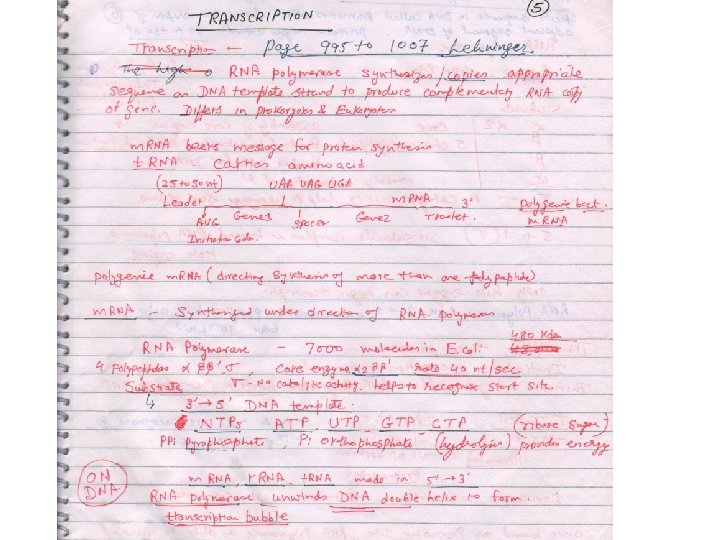 TRANSCRIPTION
5
Transcription — Page 995 to 1007 Lehninger.
The high o RNA polymerase synthesizes/copies appropriate
sequence on DNA template strand to produce complementary RNA copy
of gene. Differs in prokaryotes & Eukaryotes
mRNA bears message for protein synthesis
tRNA carries aminoacid
(25 to 50 nt) UAA UAG UGA
Leader mRNA 3' polygenic bact.
AUG Gene1 spacer Gene2 Traelet. mRNA
Initiation Codon.
polygenic mRNA (directing synthesis of more than one polypeptide)
mRNA - Synthesized under direction of RNA Polymerase
480 Kda
RNA Polymerase - 7000 molecules in E.coli
4 polypeptides α ββ' σ, core enzyme α2ββ' rate 40 nt/sec
Substrate σ - No catalytic activity helps to recognise start site.
4 3'→5' DNA template.
NTPs ATP UTP GTP CTP (ribose sugar)
PPi pyrophosphate, Pi orthophosphate (hydrolysis) provides energy
ON DNA
mRNA, rRNA, tRNA made in 5'→3'
RNA polymerase unwinds DNA double helix to form.
transcription bubble